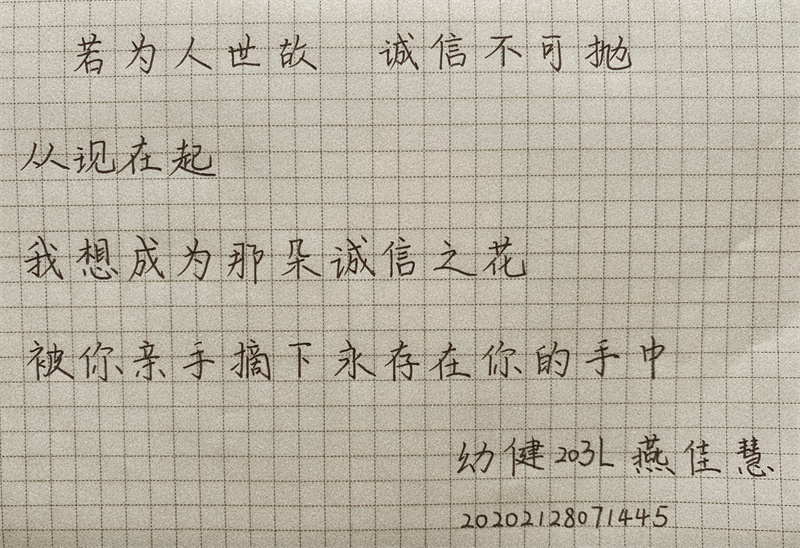 若为人世故 诚信不可抛
从现在起
我想成为那朵诚信之花
被你亲手摘下永存在你的手中
幼健203L 燕佳慧
20202128071445